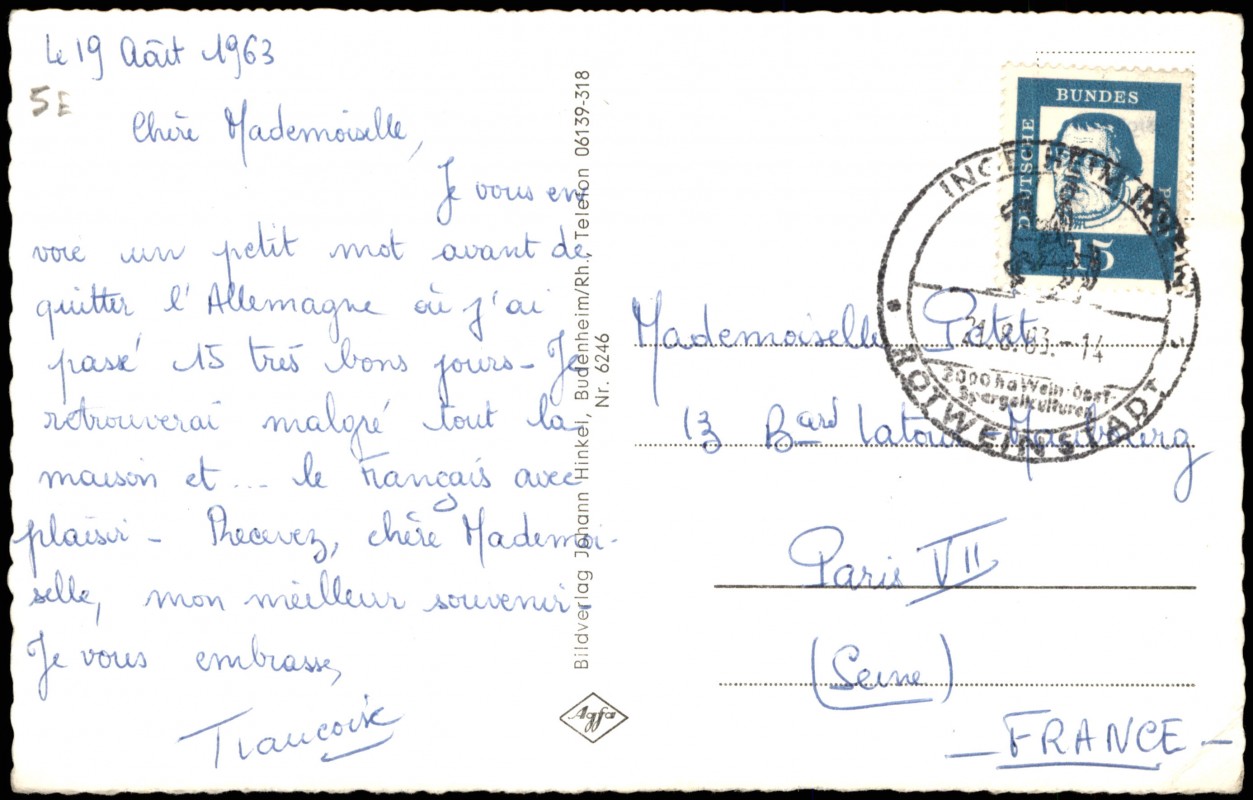 le 19 Août 1963
5E
Chère Mademoiselle,
Je vous en
voie un petit mot avant de
quitter l'Allemagne où j'ai
passé 15 très bons jours - Je
retrouverai malgré tout la
maison et ... le Français avec
plaisir - Recevez, chère Mademoi-
selle, mon meilleur souvenir.
Je vous embrasse,
Françoise
Bildverlag Johann Hinkel, Budenheim/Rh., Telefon 06139-318
Nr. 6246
Agfa
DEUTSCHE
BUNDES
15
INGELHEIM (RHEIN)
21.8.63.-14
2000 ha Wein-Obst-
Spargelkulturen
ROTWEINSTADT
Mademoiselle Petit
13 Bard Latour-Maubourg
Paris VII
(Seine)
- FRANCE -